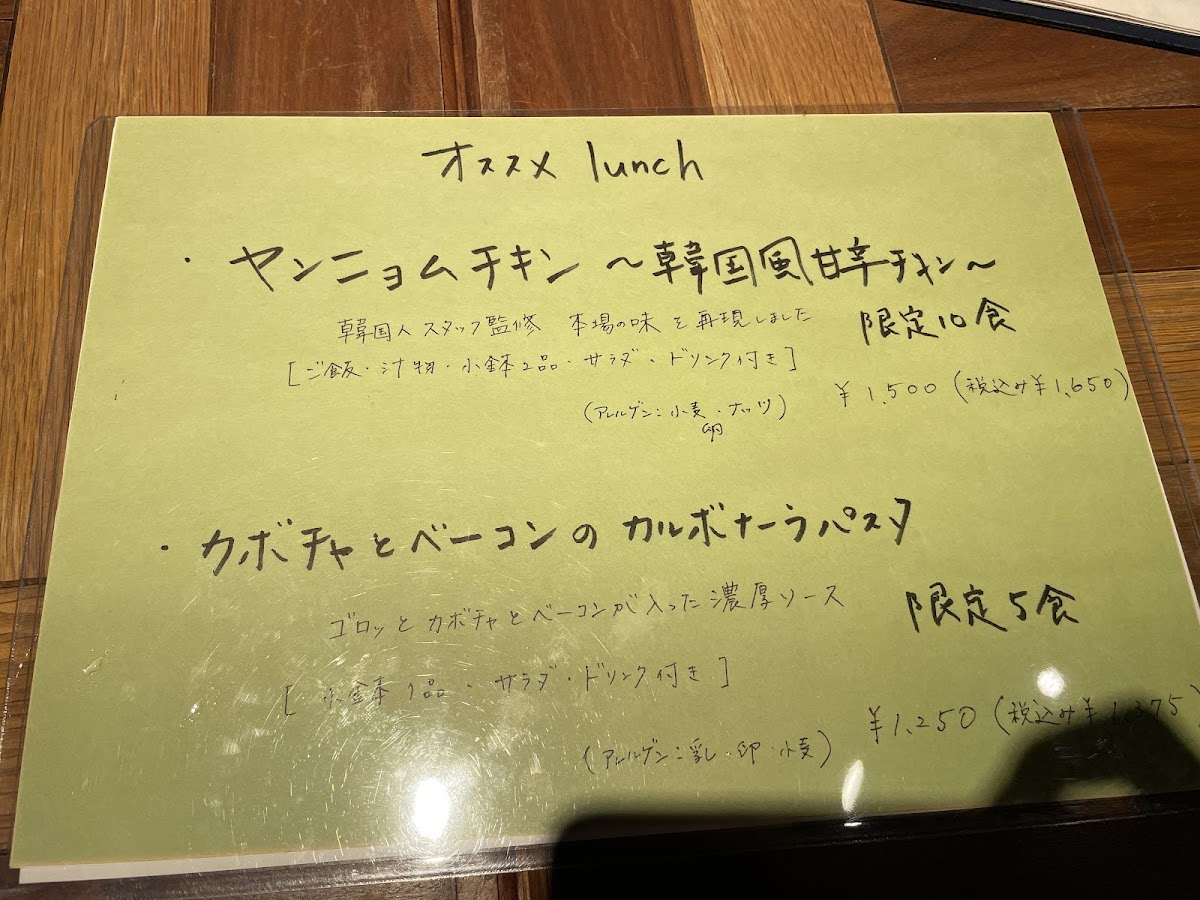 オススメ lunch
・ヤンニョムチキン ～韓国風甘辛チキン～
韓国人スタッフ監修 本場の味を再現しました
限定10食
[ご飯・汁物・小鉢2品・サラダ・ドリンク付き]
¥1,500 (税込み¥1,650)
(アレルゲン:小麦・ナッツ)
卵
・カボチャとベーコンの カルボナーラパスタ
ゴロッとカボチャとベーコンが入った濃厚ソース
限定5食
[小鉢1品・サラダ・ドリンク付き]
¥1,250 (税込み¥1,375)
(アレルゲン:乳・卵・小麦)